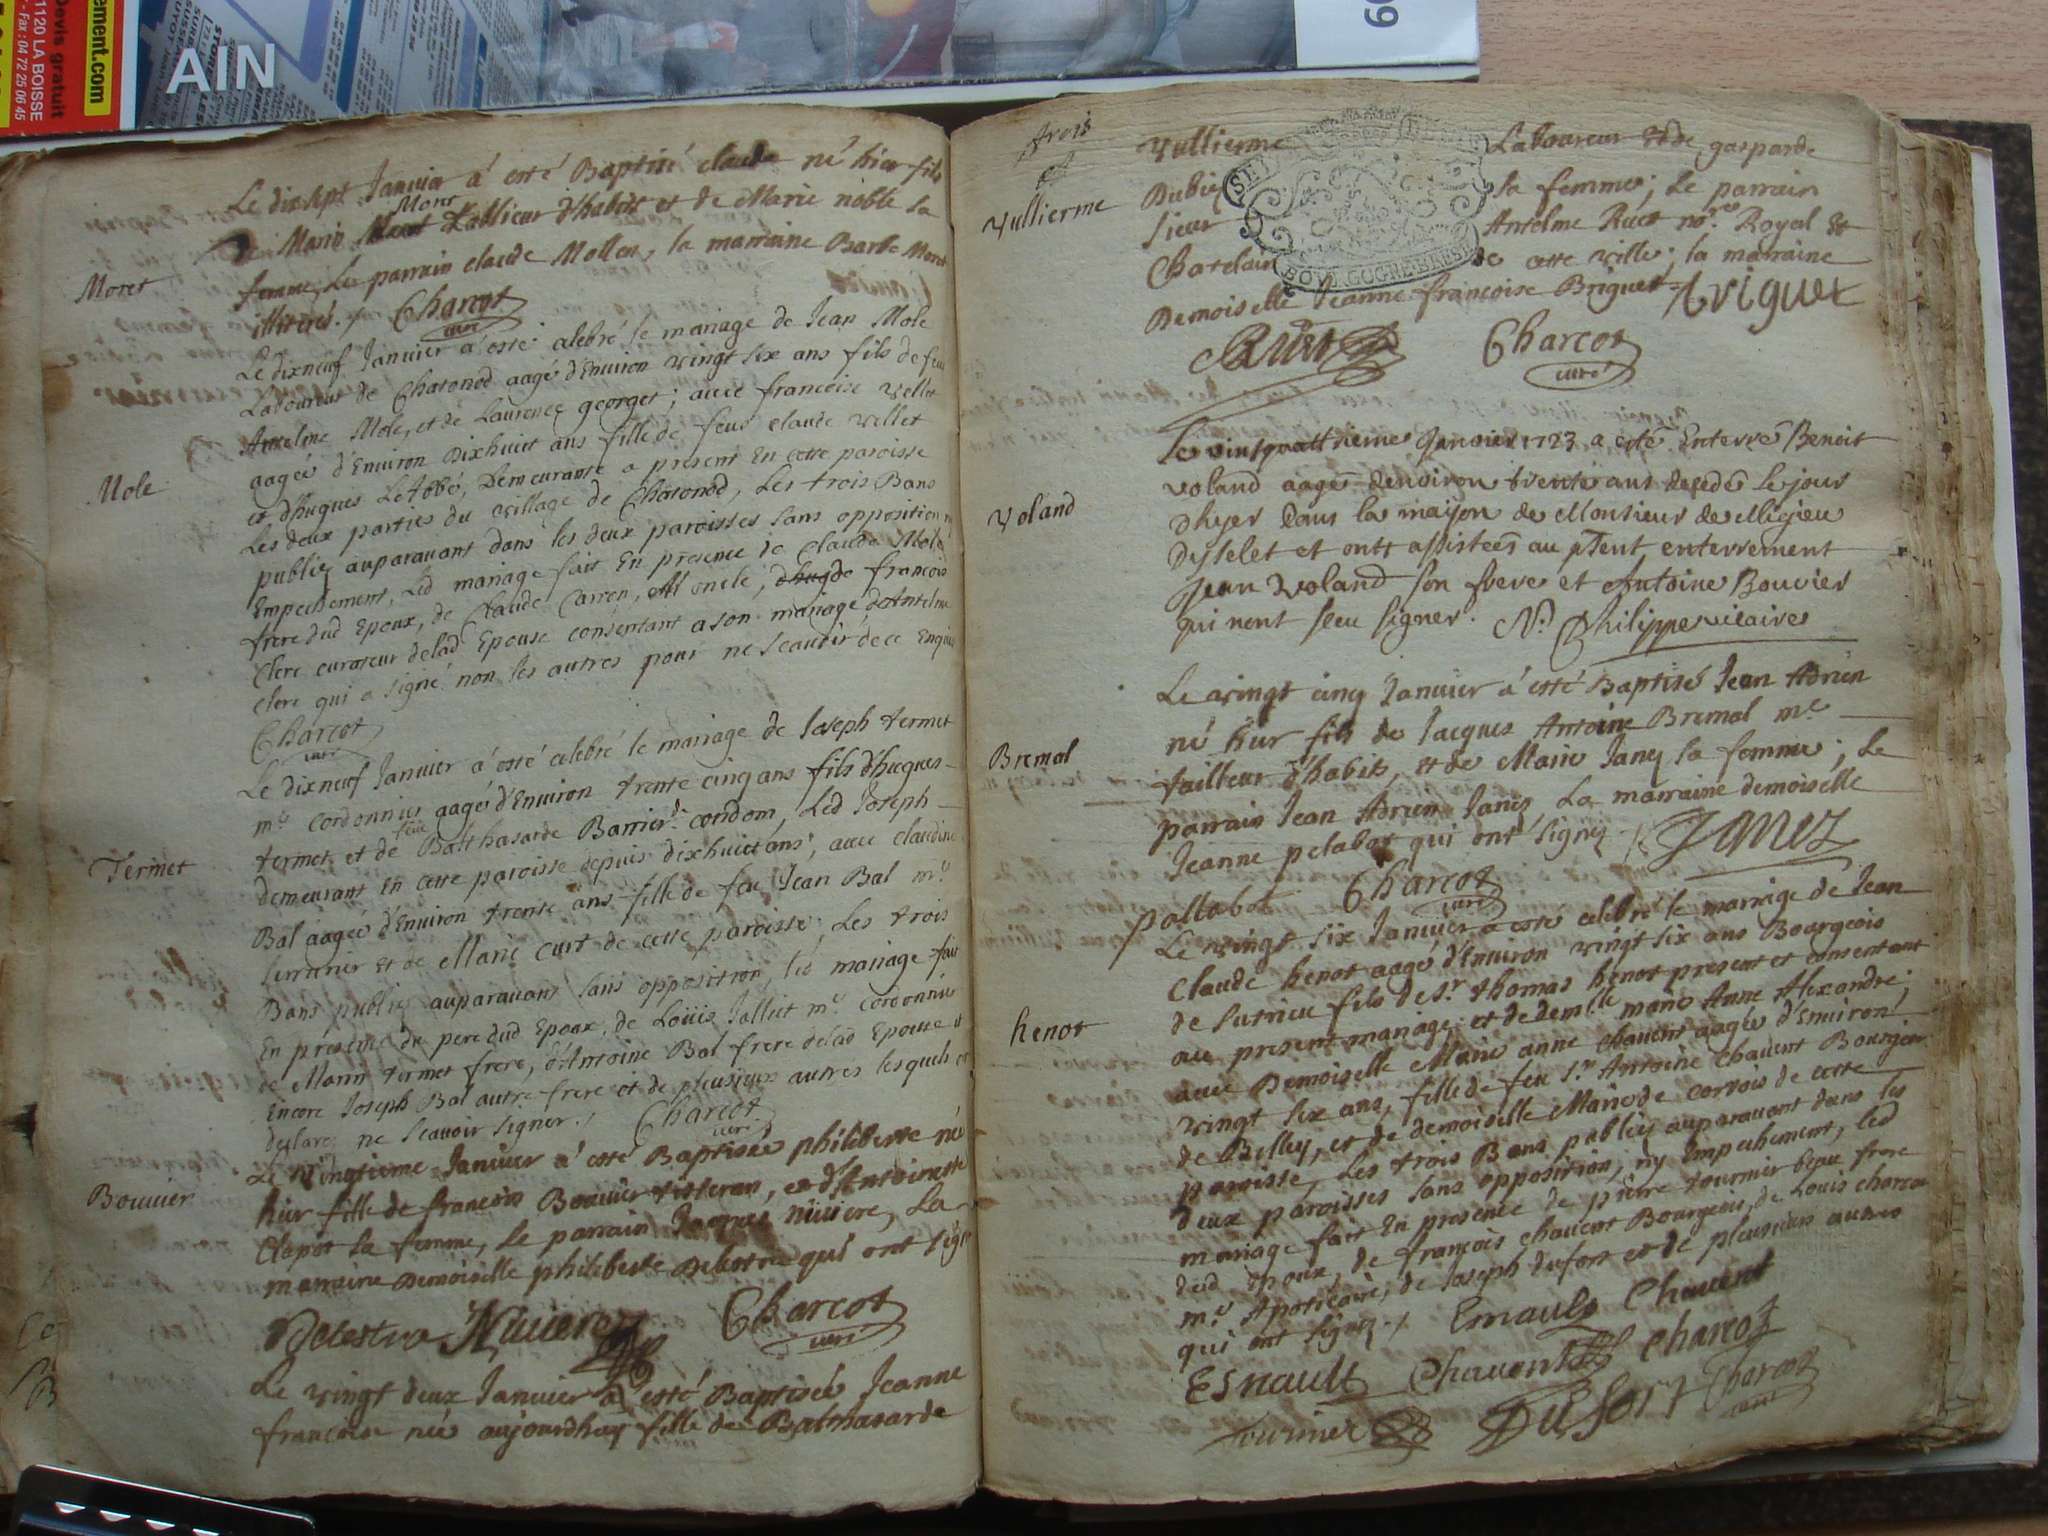 AIN
ement.com
Devis gratuit
1120 LA BOISSE
Fax : 04 72 25 06 45
99
Le dixsept Janvier à esté Baptisé claude né hier fils
Mont
De Marie Toillieur d'habits et de Marie noble sa
Moret
femme, Le parrain claude Mollon, la marraine Barbe Moret
illiterés. / Charcot
curé
Le dixneuf Janvier à esté celebré le mariage de Jean Mole
Laboureur de Chatonod aagé d'Environ vingt six ans fils de feu
Anselme Mole, et de Laurence georget; avec francoise vellet
aagée d'Environ Dixhuict ans fille de feus claude vellet
Mole
et d'hugues Demeurante a present En cette paroisse
Les deux parties du village de Chatonod, Les trois Bans
publiez auparavant dans les deux paroisses sans opposition ni
Empechement, Led mariage fait En presence de Claude Mole
frere dud Epoux, de Claude Carron, oncle, francois
Clerc curateur delad Epouse consentant a son mariage d'Antelme
Clerc qui a signé non les autres pour ne scavoir de ce Enquis
Charcot
curé
Le dixneuf Janvier à esté celebré le mariage de Joseph termet
me cordonnier aagé d'Environ trente cinq ans fils d'hugues
feue
termet et de Balthasarde Barrier condom, Led Joseph
Termet
demeurant En cette paroisse depuis dixhuict ans, avec claudine
Bal aagée d'Environ trente ans fille de feu Jean Bal me
serrurier et de Marie curt de cette paroisse; Les trois
Bans publiez auparavant sans opposition, led mariage fait
En presence du pere dud Epoux, de Loüis Jolliet me cordonnier
de Marin termet frere, d'Antoine Bal frere delad Epouse et
Encore Joseph Bal autre frere et de plusieurs autres lesquels ont
declare ne scavoir signer. / Charcot
curé
Le vingtieme Janvier à esté Baptisée philiberte née
Bouvier
hier fille de francois Bouvier tisseran, et d'Antoinette
Clapot sa femme, Le parrain Jacques niviere, La
marraine Demoiselle philiberte Delestra qui ont signé
Delestra Niviere Charcot
curé
Le vingt deux Janvier à esté Baptisée Jeanne
francoise née aujourdhuy fille de Balthasarde
trois
et
Vullierme Laboureur et de gasparde
Dubiez sa femme; Le parrain
Vullierme
sieur Antelme Ruet nore Royal et
Chatelain de cette ville; la marraine
Demoiselle Jeanne francoise Briguet Briguet
Ruet Charcot
curé
Le vintquattrieme Janvier 1723 a esté Enterré Benoit
Voland
voland aagé denviron trente ans decedé le jour
dhyer dans la maison de Monsieur de Megieu
Dyselet et ontt assistees au pñt enterrement
Jean Voland son frere et Antoine Bouvier
qui nont sceu signer. N. Philippe vicaire
Le vingt cinq Janvier à esté Baptisé Jean Adrien
né hier fils de Jacques Antoine Bremal me
Bremal
tailleur d'habits, et de Marie Janez sa femme; Le
parrain Jean Adrien Janez La marraine demoiselle
Jeanne pelabot qui ont signez ./ Janez
pallabot Charcot
curé
Le vingt six Janvier à esté celebré le mariage de Jean
Claude henot aagé d'Environ vingt six ans Bourgeois
de Sutrieu fils de Sr thomas henot present et consentant
henot
au present mariage, et de demlle marie Anne Alexandre;
avec Demoiselle Marie anne chavent aagée d'Environ
vingt six ans, fille de feu Sr Antoine Chavent Bourgeois
de Belley, et de demoiselle Marie de corvois de cette
paroisse, Les trois Bans publiez auparavant dans les
deux paroisses sans opposition, ny Empechement, led
mariage fait En presence de pierre tournier beau frere
dud Epoux, de francois chavent Bourgeois, de Louis charcot
me Apoticaire, de Joseph dufort et de plusieurs autres
qui ont signez ./ Ernault Chavent
Esnault Chavent Charcot
tournier Dufort Charcot
curé